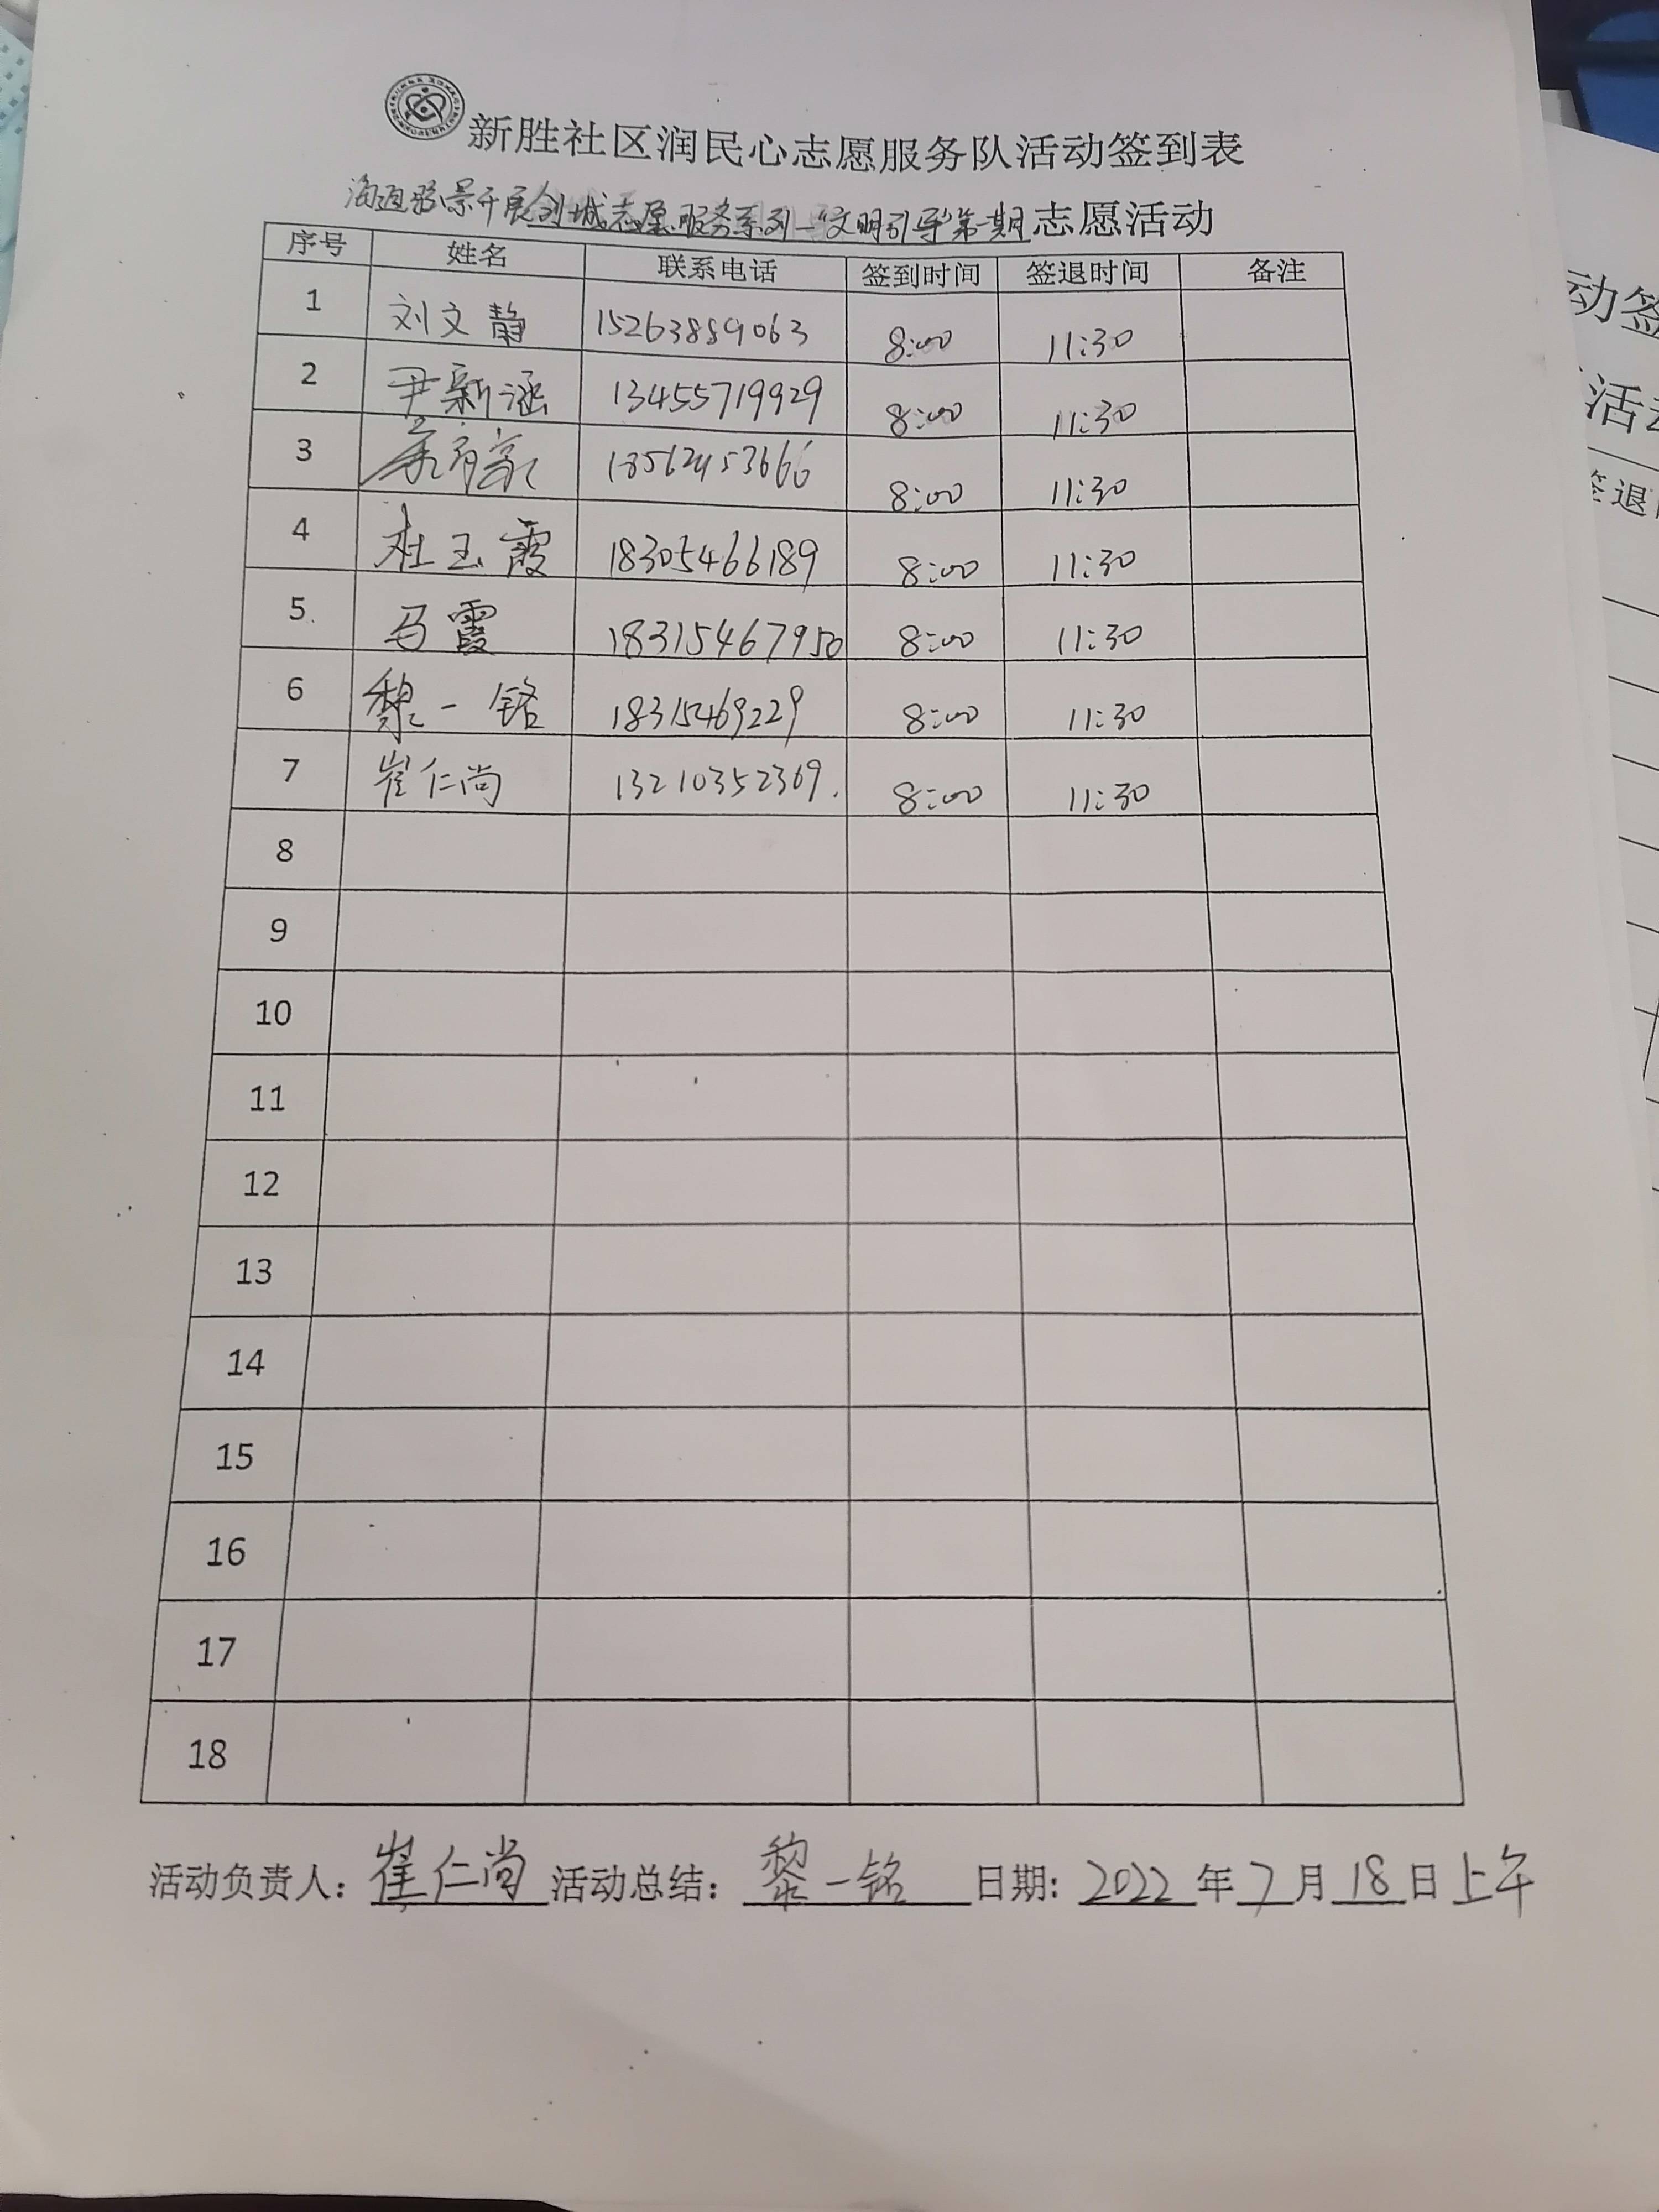 新胜社区润民心志愿服务队活动签到表
开展创城志愿服务系列—“文明引导”第一期志愿活动
序号 姓名 联系电话 签到时间 签退时间 备注
1 刘文静 15263889063 8:00 11:30
2 尹新涵 13455719929 8:00 11:30
3 8:00 11:30
4 杜玉霞 18305466189 8:00 11:30
5 马霞 18315467950 8:00 11:30
6 黎一铭 18315469229 8:00 11:30
7 崔仁尚 13210352369. 8:00 11:30
8
9
10
11
12
13
14
15
16
17
18
活动负责人: 崔仁尚 活动总结: 黎一铭 日期: 2022 年 7 月 18 日 上午
动签
活动
签退